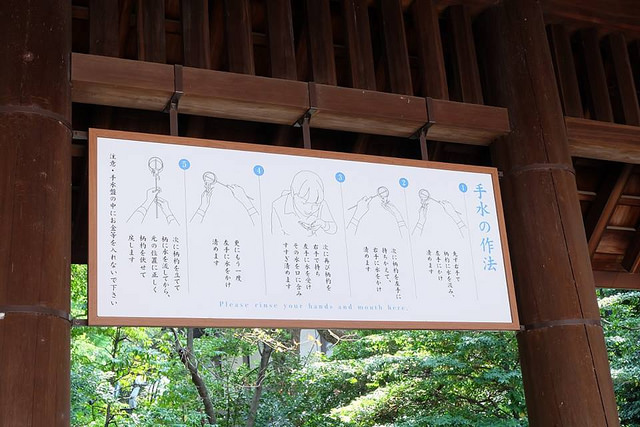 手水の作法
1
まず右手で
柄杓に水を汲み、
左手にかけ
清めます
2
次に柄杓を左手に
持ちかえて、
右手に水をかけ
清めます
3
次に再び柄杓を
右手で持ち
左手に水を受け
その水を口に含み
すすぎ清めます
4
更にもう一度
左手に水をかけ
清めます
5
次に柄杓を立てて
柄に水を流してから、
元の位置に正しく
柄杓を伏せて
戻します
注意・手水盤の中にお金等を入れないで下さい
Please rinse your hands and mouth here.